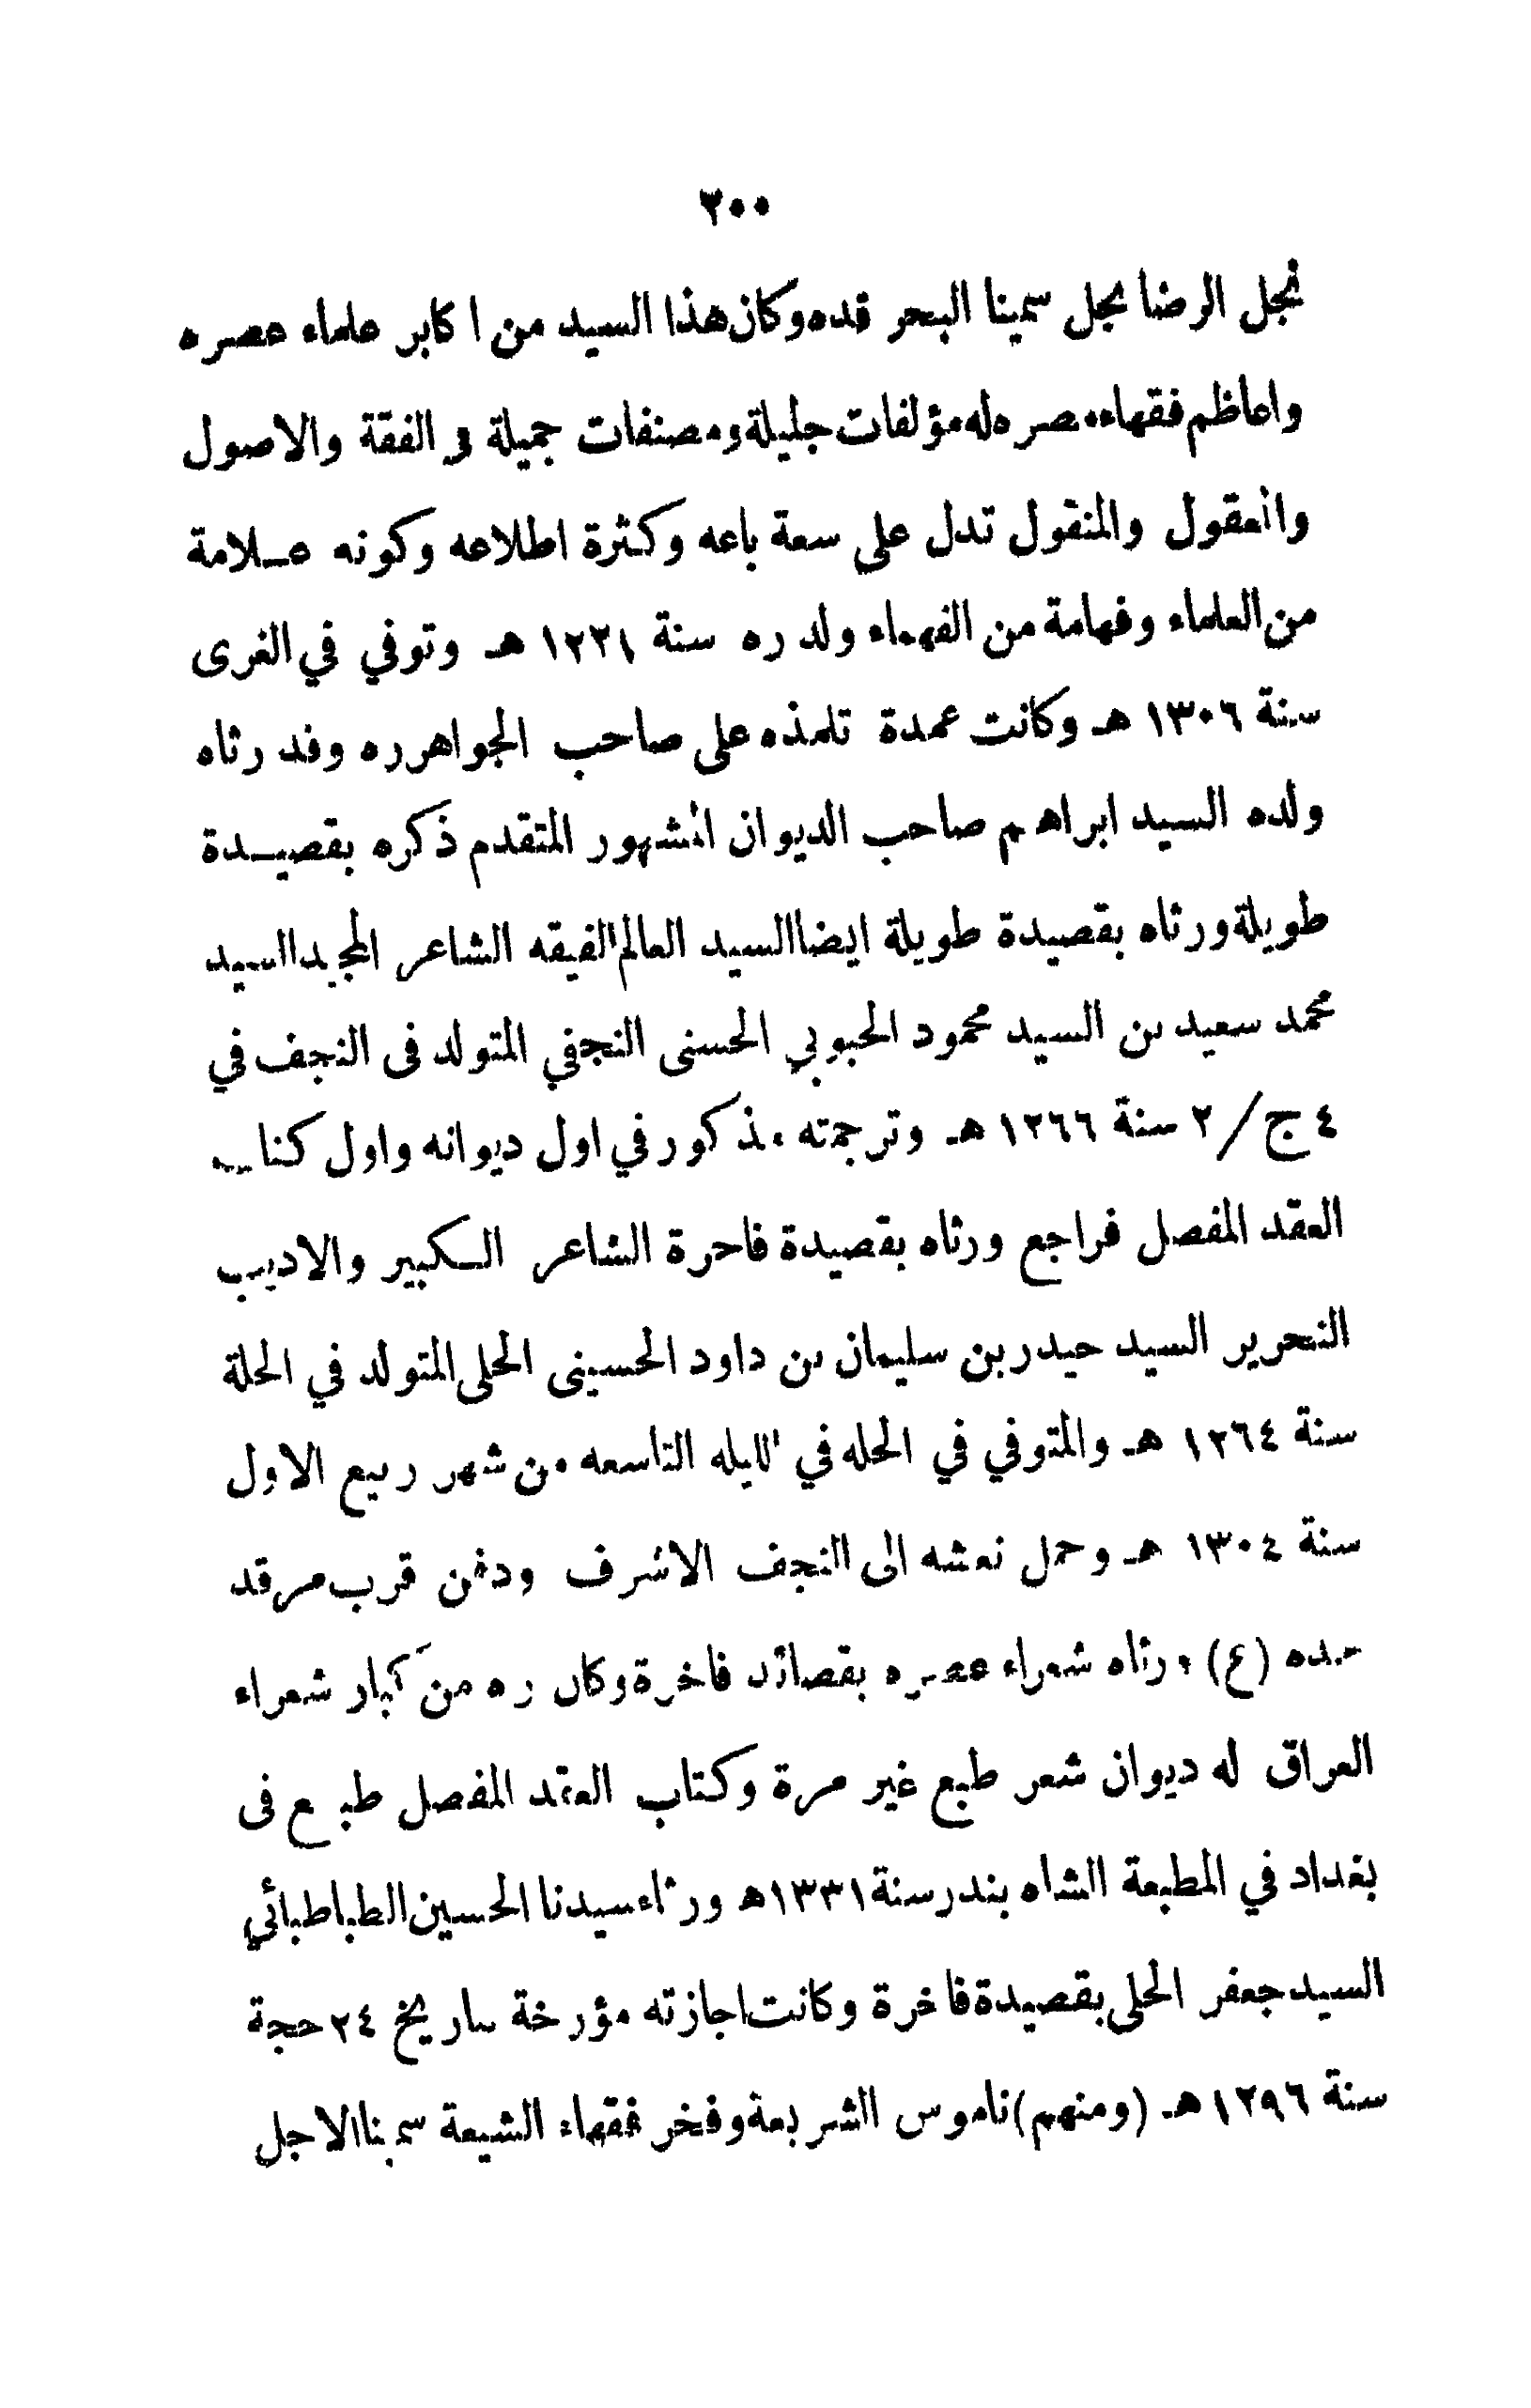 ٢٠٠
نجل الرضا نجل سمينا البحر قده وكان هذا السيد من اكابر علماء عصره
واعاظم فقهاء مصره له مؤلفات جليلة ومصنفات جميلة في الفقة والاصول
والمعقول والمنقول تدل على سعة باعه وكثرة اطلاعه وكونه عـلامة
من العلماء وفهامة من الفهماء ولد ره سنة ١٢٢١ هـ وتوفي في الغرى
سنة ١٣٠٦ هـ وكانت عمدة تلمذه على صاحب الجواهر ره وقد رثاه
ولده السيد ابراهيم صاحب الديوان المشهور المتقدم ذكره بقصيـدة
طويلة ورثاه بقصيدة طويلة ايضا السيد العالم الفيقه الشاعر المجيد السيد
محمد سعيد بن السيد محمود الحبوبي الحسنى النجفي المتولد فى النجف في
٤ ج/ ٢ سنة ١٢٦٦ هـ وترجمته مذكور في اول ديوانه واول كتاب
العقد المفصل فراجع ورثاه بقصيدة فاخرة الشاعر الـكبير والاديب
النحرير السيد حيدر بن سليمان بن داود الحسينى الحلى المتولد في الحلة
سنة ١٢٦٤ هـ والمتوفي في الحله في الليله التاسعه من شهر ربيع الاول
سنة ١٣٠٤ هـ وحمل نعشه الى النجف الاشرف ودفن قرب مرقد
جده (ع) ورثاه شعراء عصره بقصائد فاخرة وكان ره من كبار شعراء
العراق له ديوان شعر طبع غير مرة وكتاب العقد المفصل طبع فى
بغداد في المطبعة الشاه بندر سنة ١٣٣١ هـ ورثاء سيدنا الحسين الطباطبائي
السيد جعفر الحلى بقصيدة فاخرة وكانت اجازته مؤرخة بتاريخ ٢٤ حجة
سنة ١٢٩٦ هـ (ومنهم) ناموس الشريعة وفخر فقهاء الشيعة سمينا الاجل